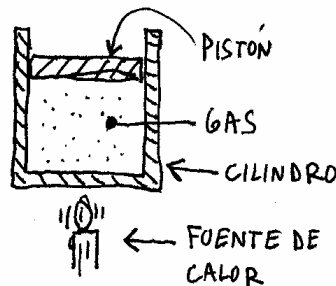 PISTÓN
GAS
CILINDRO
FUENTE DE
CALOR